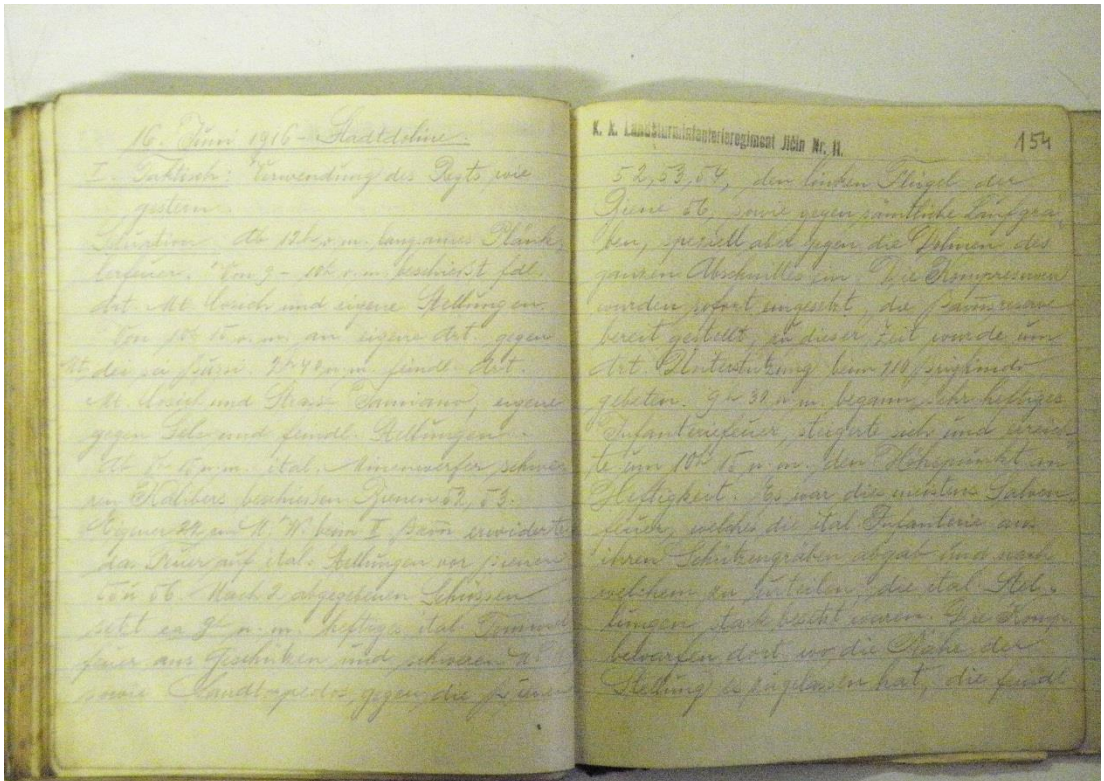 16. Juni 1916 - Stadtdoline.
I. Taktisch: Verwendung des Regts wie
gestern.
Situation. Ab 12h v. m. langsames Plänk-
lerfeuer. Von 9 - 10h v. m. beschießt
Art. Mt. Cosich und eigene Stellungen.
Von 10h 15 v. m. an eigene Art. gegen
feindl. Art.
Mt. Cosich und Strasse eigene
gegen Selz und feindl. Stellungen.
Ab n. m. ital. Minenwerfer, schwe-
ren Kalibers beschiessen 52, 53.
beim II. Baon erwiderte
das Feuer auf ital. Stellungen vor
55 u 56. Nach 2 abgegebenen Schüssen
setzt n. m. heftiges ital. Trommel
feuer aus Geschützen und schweren
sowie Handtorpedos, gegen die
K. k. Landsturminfanterieregiment Jičin Nr. 11.
154
52, 53, 54, den linken Flügel der
56, sowie gegen sämtliche Laufgrä-
ben, speziell aber gegen die Dolinen des
ganzen Abschnittes ein. Die
wurden sofort eingesetzt, die Baonsreserve
bereit gestellt, zu dieser Zeit wurde um
Art. Unterstützung beim
gebeten. 9h 30 n. m. begann sehr heftiges
Infanteriefeuer, steigerte sich und erreich-
te um 10h 15 n. m. den Höhepunkt an
Heftigkeit. Es war die meistens Salven-
feuer, welches die ital. Infanterie aus
ihren Schützengräben abgab und nach
welchem zu urteilen, die ital. Stel-
lungen stark besetzt waren. Die Komp.
bewarfen dort, wo die Nähe der
Stellung es zugelassen hat, die feindl